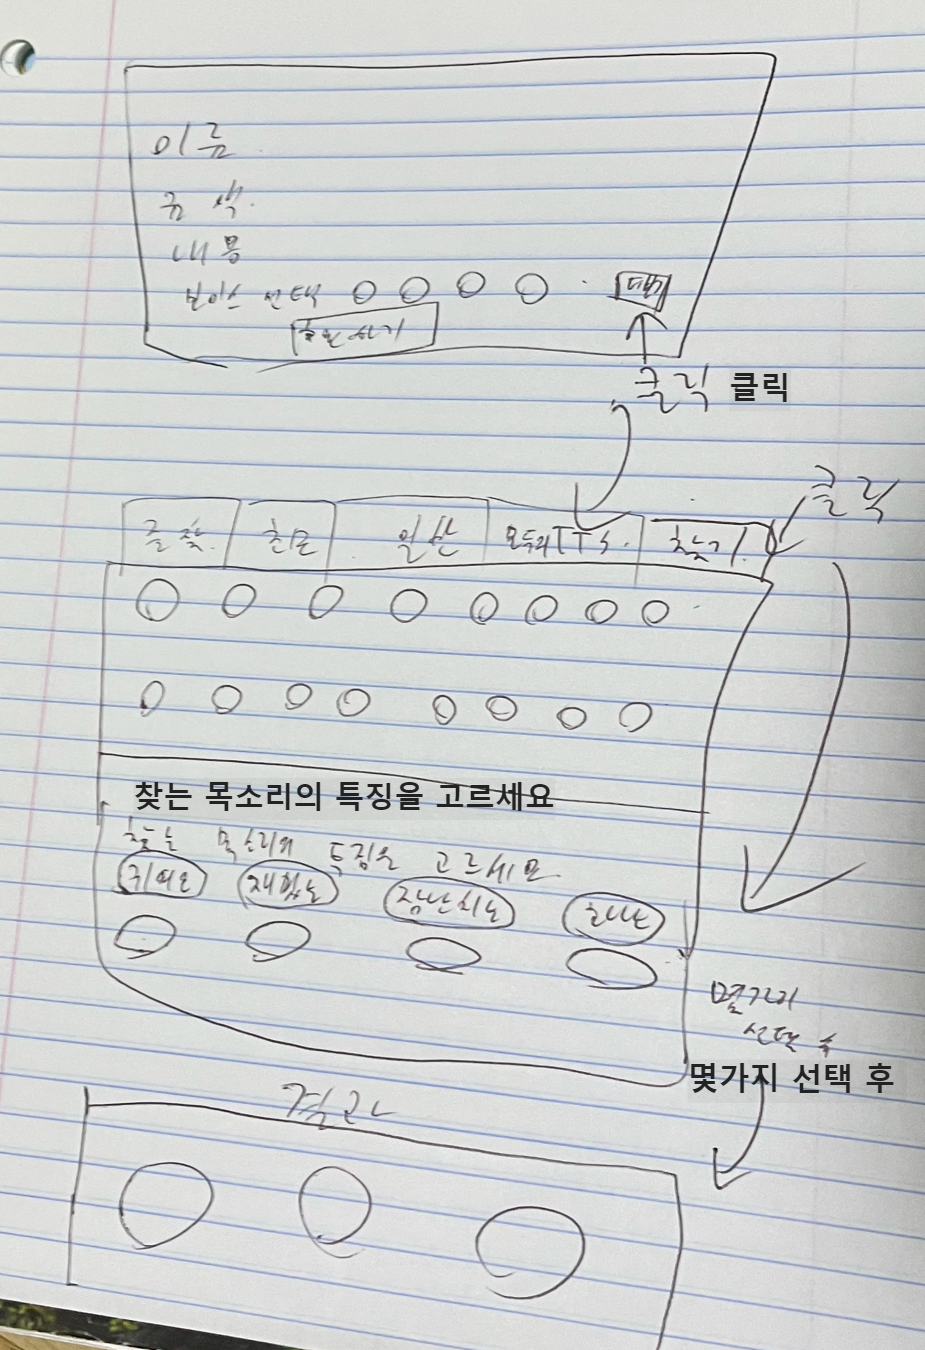 이름
금액
내용
보이스 선택 더보기
후원하기
클릭 클릭
클릭
즐찾 최근 일반 모두의TTS 찾기
찾는 목소리의 특징을 고르세요
찾는 목소리의 특징을 고르세요
귀여운 재밌는 장난치는 화난
몇가지
선택 후
몇가지 선택 후
결과